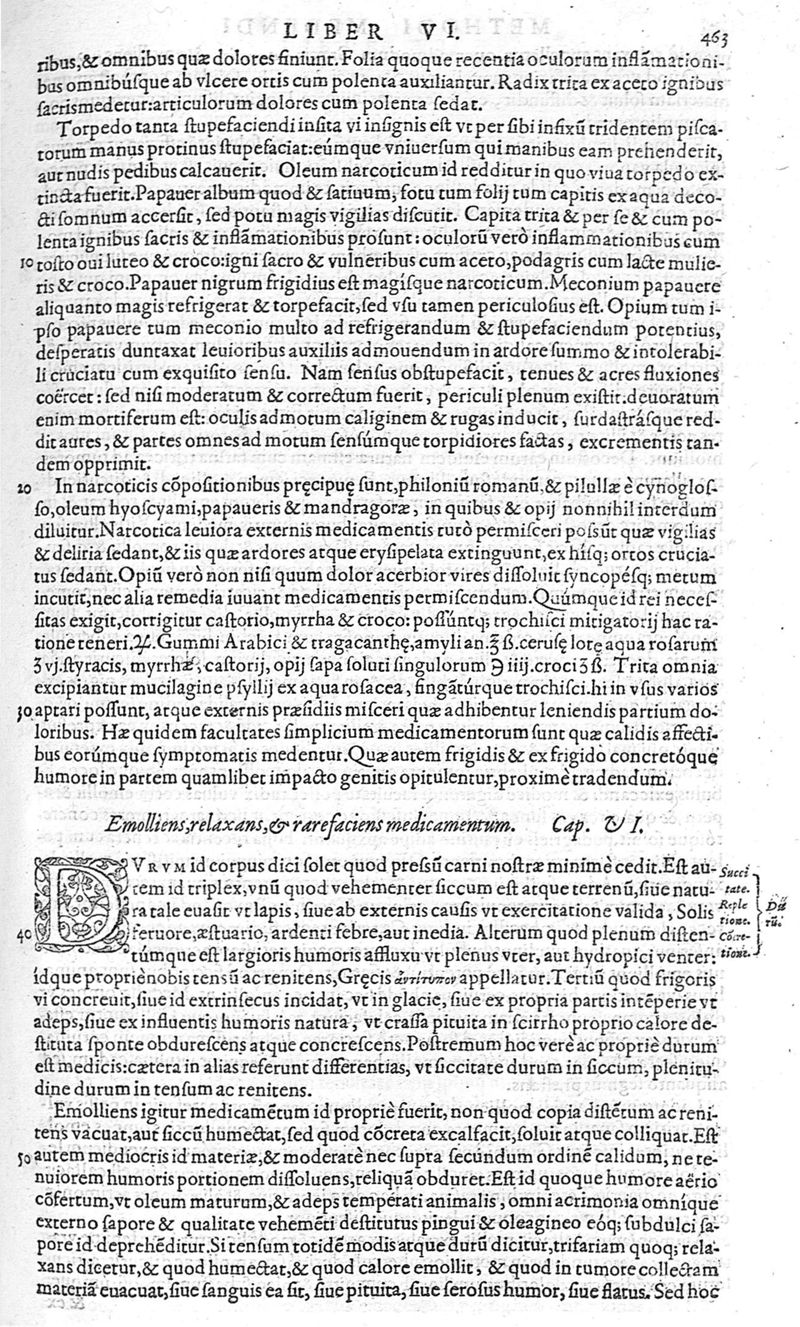 LIBER VI. 463
ribus,& omnibus quæ dolores finiunt. Folia quoque recentia oculorum inflãmationi-
bus omnibúsque ab vlcere ortis cum polenta auxiliantur. Radix trita ex aceto ignibus
sacris medetur: articulorum dolores cum polenta sedat.
Torpedo tanta stupefaciendi insita vi insignis est vt per sibi infixũ tridentem pisca-
torum manus protinus stupefaciat: eúmque vniuersum qui manibus eam prehenderit,
aut nudis pedibus calcauerit. Oleum narcoticum id redditur in quo viua torpedo ex-
tincta fuerit. Papauer album quod & satiuum, fotu tum folij tum capitis ex aqua deco-
cti somnum accersit, sed potu magis vigilias discutit. Capita trita & per se & cum po-
lenta ignibus sacris & inflãmationibus prosunt: oculorũ verò inflammationibus cum
10 tosto oui luteo & croco: igni sacro & vulneribus cum aceto, podagris cum lacte mulie-
ris & croco. Papauer nigrum frigidius est magísque narcoticum. Meconium papauere
aliquanto magis refrigerat & torpefacit, sed vsu tamen periculosius est. Opium tum i-
pso papauere tum meconio multo ad refrigerandum & stupefaciendum potentius,
desperatis duntaxat leuioribus auxiliis admouendum in ardore summo & intolerabi-
li cruciatu cum exquisito sensu. Nam sensus obstupefacit, tenues & acres fluxiones
coërcet: sed nisi moderatum & correctum fuerit, periculi plenum existit. deuoratum
enim mortiferum est: oculis admotum caliginem & rugas inducit, surdastrásque red-
dit aures, & partes omnes ad motum sensúmque torpidiores factas, excrementis tan-
dem opprimit.
20 In narcoticis cõpositionibus pręcipuę sunt, philoniũ romanũ, & pilullæ è cynoglos-
so, oleum hyoscyami, papaueris & mandragoræ, in quibus & opij nonnihil interdum
diluitur. Narcotica leuiora externis medicamentis tutò permisceri possũt quæ vigilias
& deliria sedant, & iis quæ ardores atque erysipelata extinguunt, ex hísq; ortos crucia-
tus sedant. Opiũ verò non nisi quum dolor acerbior vires dissoluit syncopésq; metum
incutit, nec alia remedia iuuant medicamentis permiscendum. Quúmque id rei neces-
sitas exigit, corrigitur castorio, myrrha & croco: possúntq; trochisci mitigatorij hac ra-
tione teneri. ℞. Gummi Arabici & tragacanthę, amyli an. ʒ ß. cerusę lotę aqua rosarum
ʒ vj. styracis, myrrhæ, castorij, opij sapa soluti singulorum ℈ iiij. croci ʒ ß. Trita omnia
excipiantur mucilagine psyllij ex aqua rosacea, fingátúrque trochisci. hi in vsus varios
30 aptari possunt, atque externis præsidiis misceri quæ adhibentur leniendis partium do-
loribus. Hæ quidem facultates simplicium medicamentorum sunt quæ calidis affecti-
bus eorúmque symptomatis medentur. Quæ autem frigidis & ex frigido concretóque
humore in partem quamlibet impacto genitis opitulentur, proximè tradendum.
Emolliens, relaxans, & rarefaciens medicamentum. Cap. VI.
DVRVM id corpus dici solet quod pressũ carni nostræ minimè cedit. Est au-
tem id triplex, vnũ quod vehementer siccum est atque terrenũ, siue natu-
ra tale euasit vt lapis, siue ab externis causis vt exercitatione valida, Solis
40 feruore, æstuario, ardenti febre, aut inedia. Alterum quod plenum disten-
túmque est largioris humoris affluxu vt plenus vter, aut hydropici venter:
Succi
tate.
Reple
tione.
cõcre-
tione.
Du
rũ.
idque propriè nobis tensũ ac renitens, Gręcis ἀντίτυπον appellatur. Tertiũ quod frigoris
vi concreuit, siue id extrinsecus incidat, vt in glacie, siue ex propria partis intẽperie vt
adeps, siue ex influentis humoris natura, vt crassa pituita in scirrho proprio calore de-
stituta sponte obdurescens atque concrescens. Postremum hoc verè ac propriè durum
est medicis: cætera in alias referunt differentias, vt siccitate durum in siccum, plenitu-
dine durum in tensum ac renitens.
Emolliens igitur medicamẽtum id propriè fuerit, non quod copia distẽtum ac reni-
tens vacuat, aut siccũ humectat, sed quod cõcreta excalfacit, soluit atque colliquat. Est
50 autem mediocris id materiæ, & moderatè nec supra secundum ordinẽ calidum, ne te-
nuiorem humoris portionem dissoluens, reliquã obduret. Est id quoque humore aërio
cõfertum, vt oleum maturum, & adeps tẽperati animalis, omni acrimonia omníque
externo sapore & qualitate vehemẽti destitutus pingui & oleagineo eóq; subdulci sa-
pore id deprehẽditur. Si tensum totidẽ modis atque durũ dicitur, trifariam quoq; rela-
xans dicetur, & quod humectat, & quod calore emollit, & quod in tumore collectam
materiã euacuat, siue sanguis ea sit, siue pituita, siue serosus humor, siue flatus. Sed hoc